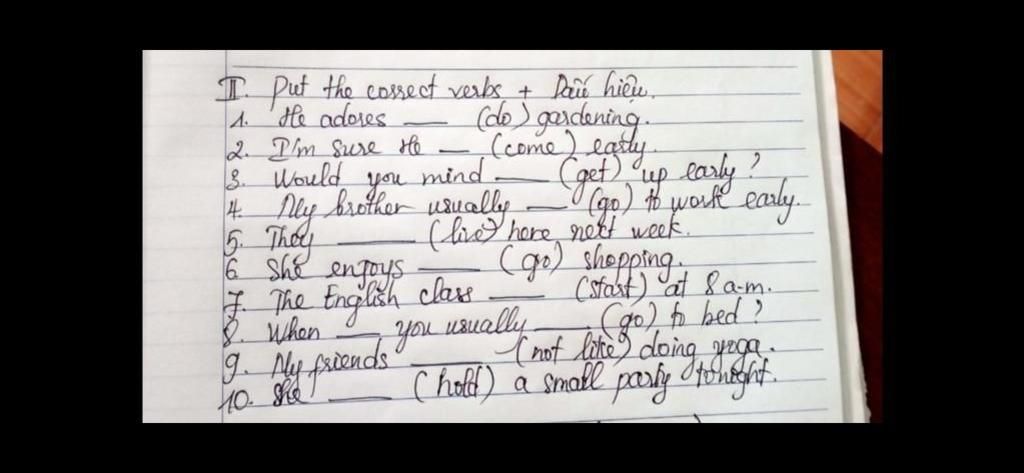 II. Put the correct verbs + Dấu hiệu.
1. He adores ___ (do) gardening.
2. I'm sure He _ (come) early.
3. Would you mind ___ (get) up early?
4. My brother usually ___ (go) to work early.
5. They ____ (live) here next week.
6 She enjoys ____ (go) shopping.
7. The English class ___ (start) at 8 a-m.
8. When ___ you usually ___ (go) to bed?
9. My friends ____ (not like) doing yoga.
10. She ____ (hold) a small party tonight.